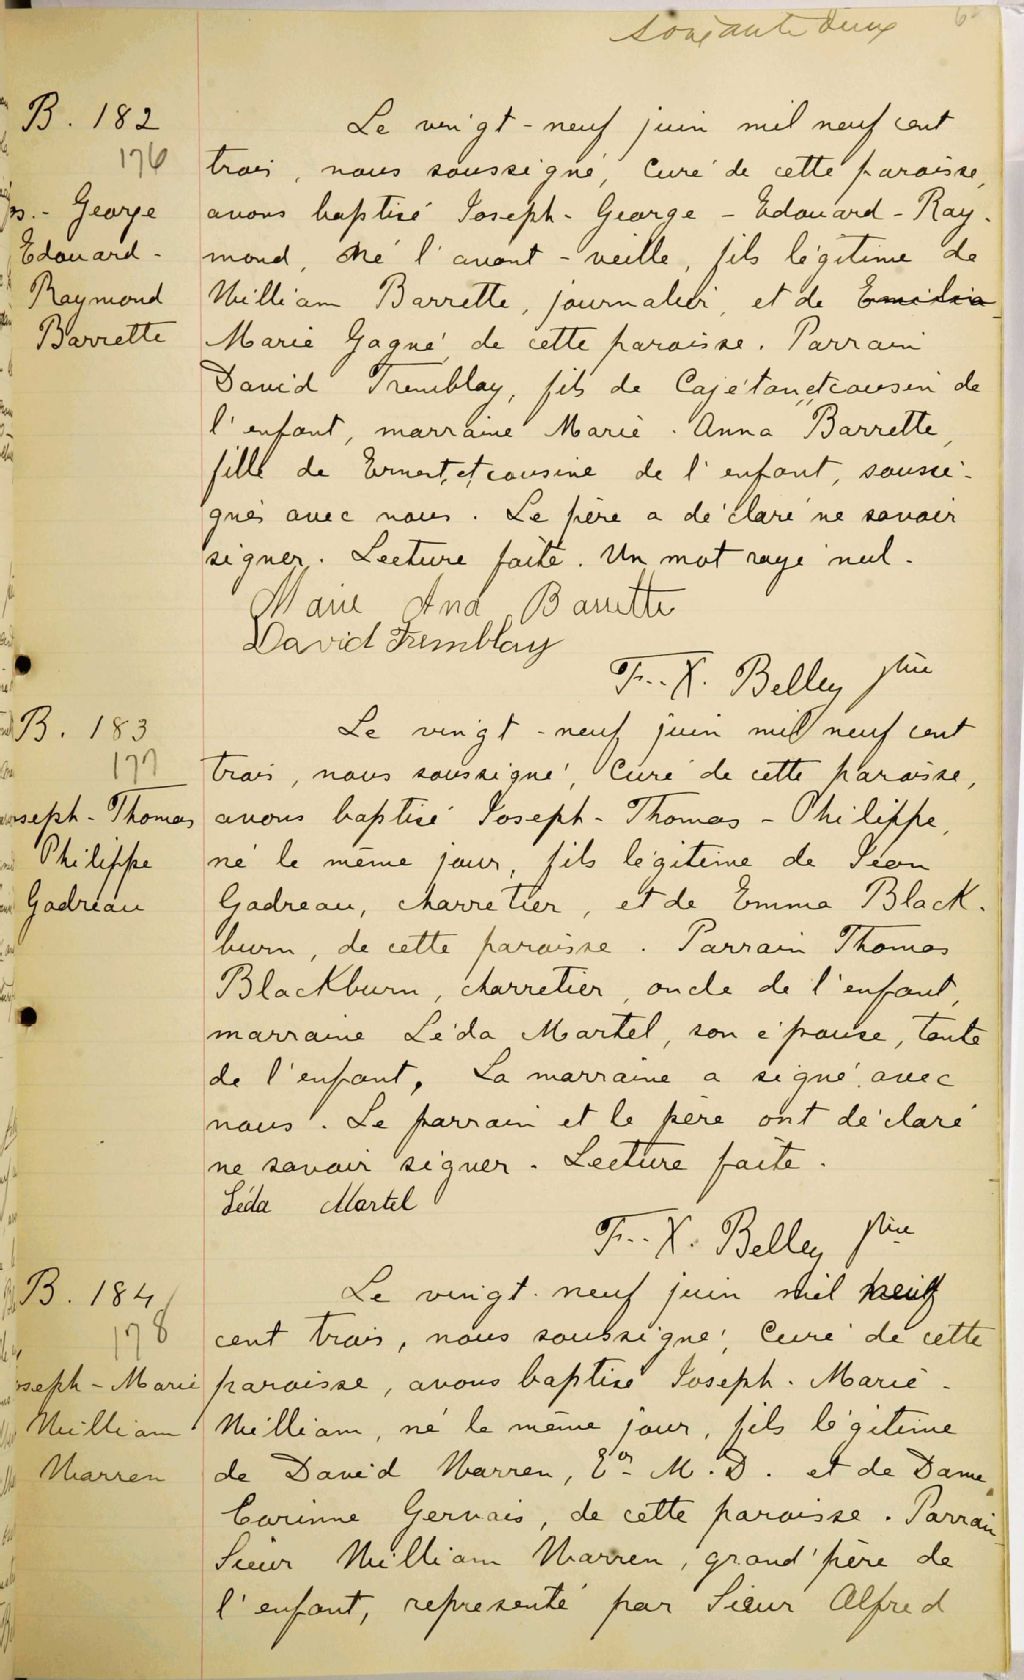 soixante deux
B. 182
176
s.- George
Edouard -
Raymond
Barrette
Le vingt-neuf juin mil neuf cent
trois, nous soussigné, Curé de cette paroisse,
avons baptisé Joseph-George-Edouard-Ray-
mond, né l'avant-veille, fils légitime de
William Barrette, journalier, et de Emilia
Marie Gagné, de cette paroisse. Parrain
David Tremblay, fils de Cajétan, et cousin de
l'enfant, marraine Marie-Anna Barrette,
fille de Ernest, et cousine de l'enfant, soussi-
gnés avec nous. Le père a déclaré ne savoir
signer. Lecture faite. Un mot rayé nul.
Marie Ana Barrette
David Tremblay
F.-X. Belley ptre
B. 183
177
seph-Thomas
Philippe
Gadreau
Le vingt-neuf juin mil neuf cent
trois, nous soussigné, Curé de cette paroisse,
avons baptisé Joseph-Thomas-Philippe,
né le même jour, fils légitime de Jean
Gadreau, charretier, et de Emma Black-
burn, de cette paroisse. Parrain Thomas
Blackburn, charretier, oncle de l'enfant,
marraine Léda Martel, son épouse, tante
de l'enfant. La marraine a signé avec
nous. Le parrain et le père ont déclaré
ne savoir signer. Lecture faite.
Léda Martel
F.-X. Belley ptre
B. 184
178
seph-Marie
William
Warren
Le vingt-neuf juin mil neuf
cent trois, nous soussigné, Curé de cette
paroisse, avons baptisé Joseph-Marie-
William, né le même jour, fils légitime
de David Warren, Er M.D. et de Dame
Corinne Gervais, de cette paroisse. Parrain
Sieur William Warren, grand'père de
l'enfant, représenté par Sieur Alfred